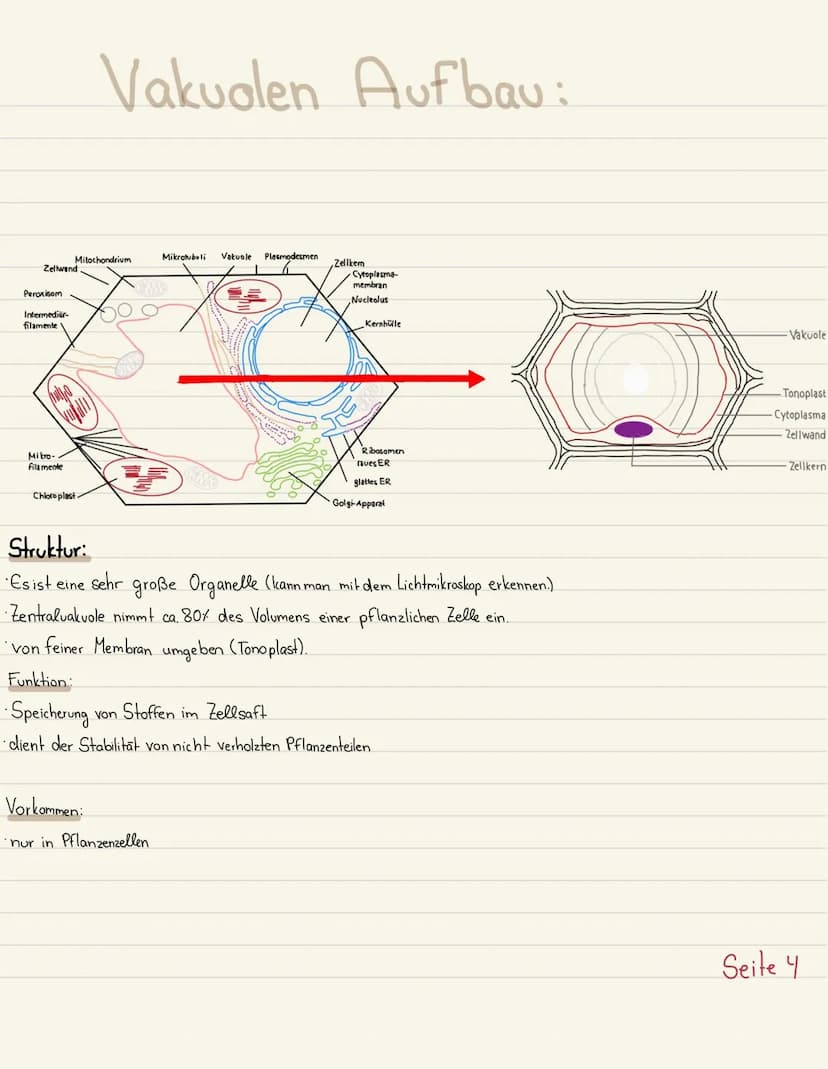 Vakuolen Aufbau:
Mitochondrium
Mikrotubuli
Vakuole
Plasmodesmen
Zellkern
Zellwand
Cytoplasma-
membran
Peroxisom
Nucleolus
Intermediär-
filamente
Kernhülle
Vakuole
Tonoplast
Cytoplasma
Zellwand
Zellkern
Mikro-
filamente
Ribosomen
raues ER
glattes ER
Chloroplast
Golgi-Apparat
Struktur:
·Es ist eine sehr große Organelle (kann man mit dem Lichtmikroskop erkennen.)
·Zentralvakuole nimmt ca. 80% des Volumens einer pflanzlichen Zelle ein.
·von feiner Membran umgeben (Tonoplast).
Funktion:
·Speicherung von Stoffen im Zellsaft
·dient der Stabilität von nicht verholzten Pflanzenteilen
Vorkommen:
·nur in Pflanzenzellen
Seite 4